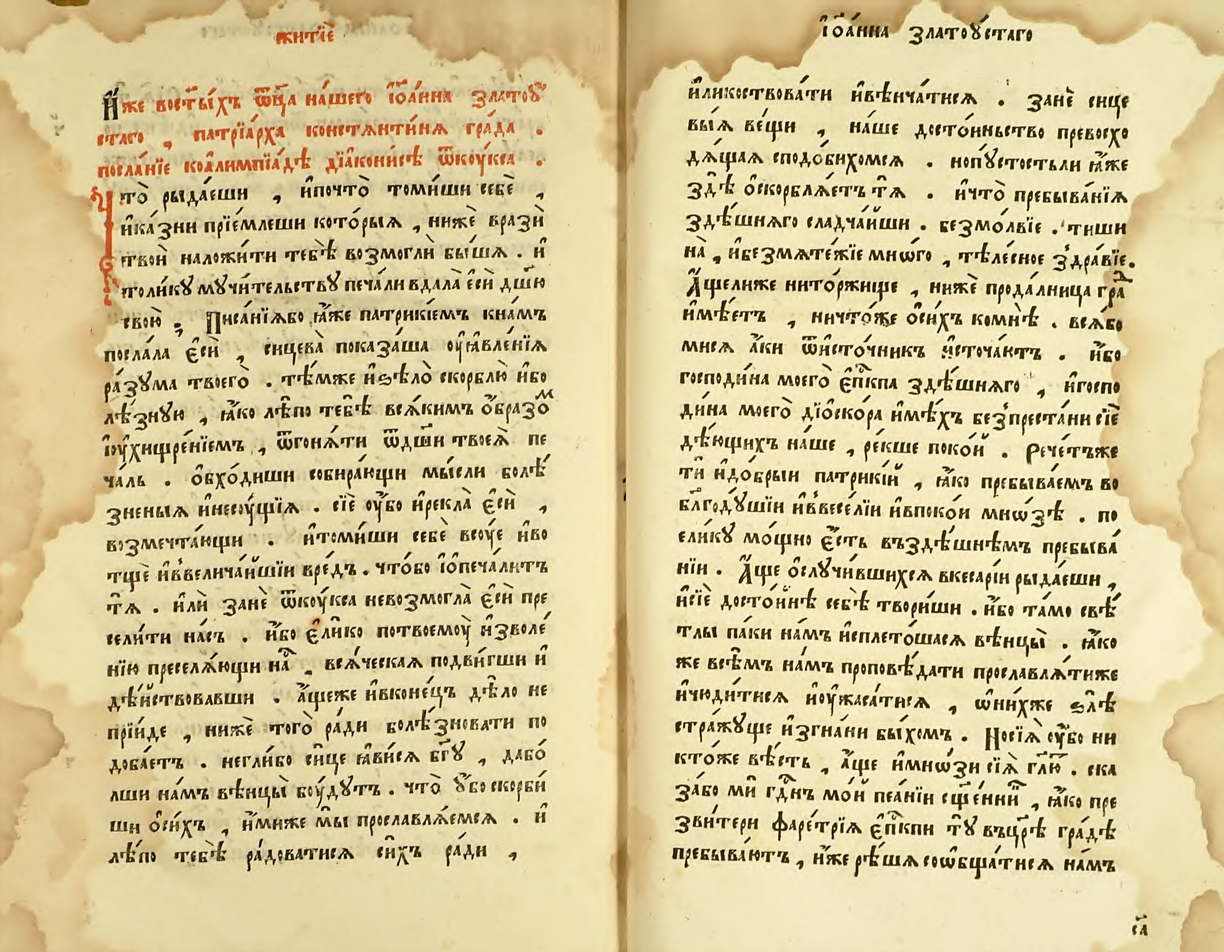 житїѐ
И҆́же востⷭ҇ыхъ ѿц҃а на́шего і҆ѡ҆а́нна златоꙋ
стаго , патрїа́рха констѧнти́нѧ гра́да .
посла́нїе коа҆лимпїа́дѣ дїа҆кони́сѣ ѿкоу́кса .
Что̀ рыда́еши , и҆почто̀ томи́ши себѐ ,
и҆ка́зни прїе́млеши кото́рыѧ , нижѐ врази̇̀
твои̇̀ наложи́ти тебѣ̀ возмогли̇̀ бы́шѧ . и҆
толи́кꙋ мꙋчи́тельствꙋ печа́ли вдала̀ є҆сѝ дш҃ꙋ
свою̀ ; Писа́нїѧбо ꙗ҆́же патрики́емъ кна́мъ
посла́ла є҆сѝ , сицева̀ показа́ша оу҆ꙗвле́нїѧ
ра́зꙋма твоего̀ . тѣ́мже и҆ѕѣло̀ скорблю̀ и҆бо
лѣ́зную , ꙗ҆́ко лѣ́по тебѣ̀ всѧ́кимъ о҆́бразоⷨ
и҆оу҆хищре́нїемъ , ѿгонѧ́ти ѿдш҃и твоеѧ̀ пе
ча́ль . о҆бхо́диши собира́ющи мы́сли болѣ́
зненыѧ и҆несоу́щїѧ . сїѐ оу҆́бо и҆рекла̀ є҆сѝ ,
возмечта́ющи . и҆томи́ши себѐ всоу́е и҆во
тщѐ и҆ввелича́йшїи вре́дъ . что́бо і҆ѡ҆печа́литъ
тѧ̀ . и҆лѝ занѐ ѿкоу́кса невозмогла̀ є҆сѝ пре
сели́ти на́съ . и҆́бо є҆ли́ко потвоемоу̀ и҆зволе́
нїю преселѧ́ющи наⷭ҇ , всѧ́ческаѧ подви́гши и҆
дѣ́йствовавши . а҆́щеже и҆вконе́цъ дѣ́ло не
прїи́де , нижѐ того̀ ради болѣ́зновати по
доба́етъ . негли́бо си́це ꙗ҆ви́сѧ бг҃ꙋ , дабо́
лши на́мъ вѣнцы̀ боу́дꙋтъ . что̀ оу҆бо скорби
ши о҆си́хъ , и҆́миже мы̀ прославлѧ́емсѧ . и҆
лѣ́по тебѣ̀ ра́доватисѧ си́хъ ра́ди ,
і҆ѡ҆а́нна златоꙋ́стаго
и҆ликоствова́ти и҆вѣнча́тисѧ . занѐ сице
выѧ ве́щи , на́ше досто́иньство превосхо
дѧ́щаѧ сподо́бихомсѧ . нопꙋстостьли ꙗ҆́же
здѣ̀ о҆скорблѧ́етъ тѧ̀ . и҆что̀ пребыва́нїѧ
здѣ́шнѧго сладча́йши . безмо́лвїе . тиши
на̀ , и҆безмѧте́жїе мно́го , тѣле́сное здра́вїе .
А҆́щелиже нито́ржище , нижѐ прода́лница гра́дъ
и҆мѣ́етъ , ничто́же о҆си́хъ комнѣ̀ . всѧ́бо
мисѧ а҆́ки ѿи҆сто́чникъ и҆сточа́ютъ . и҆́бо
господи́на моего̀ є҆пⷭ҇кпа здѣ́шнѧго , и҆госпо
ди́на моего̀ дїо́скора и҆мѣ́хъ безпреста́ни сїѐ
дѣ́ющихъ на́ше , ре́кше поко́й . Рече́тъже
тѝ и҆до́брыи патрики́й , ꙗ҆́ко пребыва́емъ во
благодꙋ́шїи и҆ввесе́лїи и҆впоко́и мно́зѣ . по
ели́кꙋ мо́щно є҆́сть въздѣ́шнѣмъ пребыва́
нїи . А҆́ще о҆слꙋчи́вшихсѧ вкесарі́и рыда́еши ,
и҆сїѐ досто́йнѣ себѣ̀ твори́ши . и҆́бо та́мо свѣ́
тлы па́ки на́мъ и҆сплето́шасѧ вѣнцы̀ . ꙗ҆́ко
же всѣ́мъ на́мъ проповѣ́дати прославлѧ́тиже
и҆чюди́тисѧ и҆оу҆жаса́тисѧ , ѡ҆ни́хже ѕлѣ̀
стра́жꙋще и҆згна́ни бы́хомъ . Носїѧ̀ оу҆́бо ни
кто́же вѣ́сть , а҆́ще и҆мно́зи сїѧ̀ гл҃ю . ска
за́бо мѝ гдⷭ҇нъ мо́й пеа́нїи сщ҃е́нны , ꙗ҆́ко пре
зви́тери фаре́трїѧ є҆пⷭ҇кпи тꙋ̀ въцр҃ѣ гра́дѣ
пребыва́ютъ , и҆́же рѣ́шѧ соѡ҆бща́тисѧ на́мъ